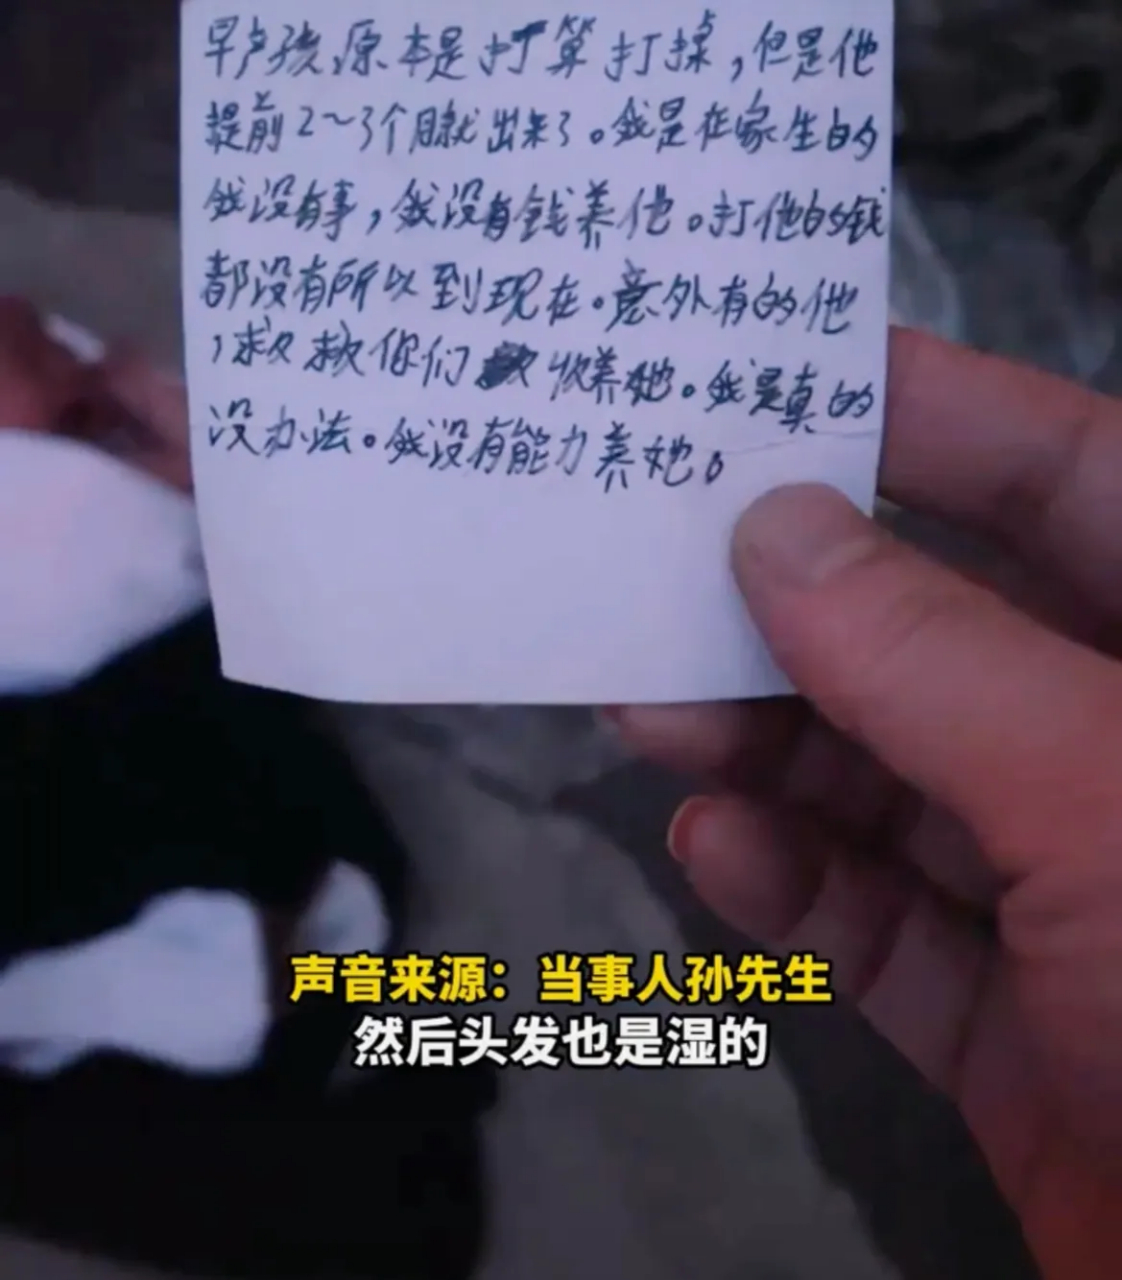 早产孩,原本是打算打掉,但是他
提前2～3个月就出来了。我是在家生的
我没有事,我没有钱养他。打他的钱
都没有所以到现在。意外有的他
,求求你们收养她。我是真的
没办法。我没有能力养她。
声音来源：当事人孙先生
然后头发也是湿的